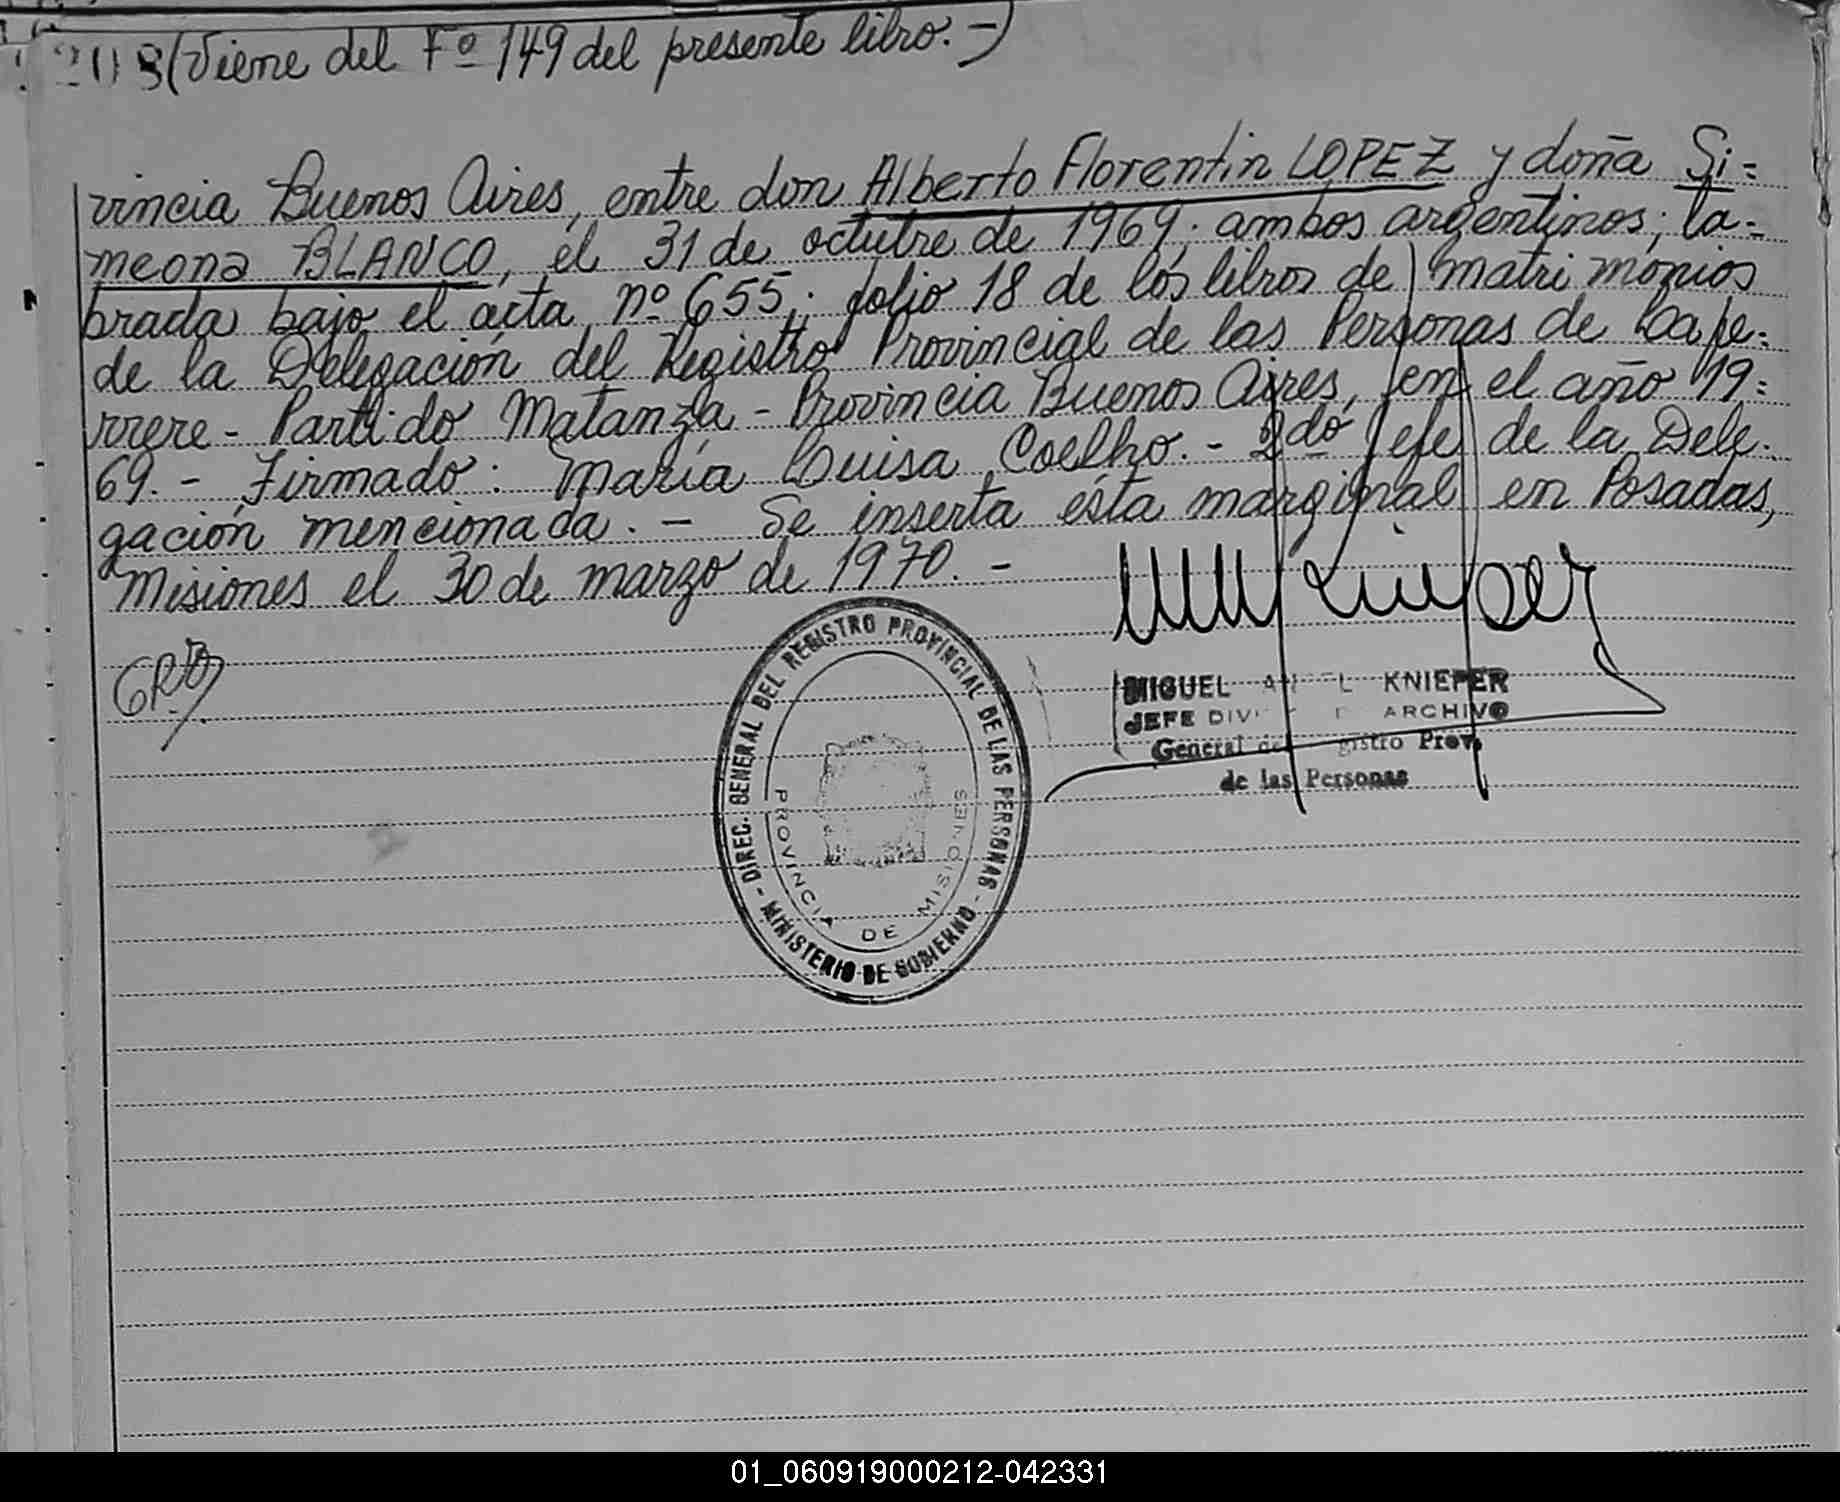 208 (Viene del Fº 149 del presente libro. -)
vincia Buenos Aires, entre don Alberto Florentin LOPEZ y doña Si=
meona BLANCO, el 31 de octubre de 1969; ambos argentinos; la=
brada bajo el acta nº 655; folio 18 de los libros de matrimonios
de la Delegación del Registro Provincial de las Personas de Lafe=
rrere - Partido Matanza - Provincia Buenos Aires, en el año 19=
69. - Firmado: María Luisa Coelho. - 2do Jefe de la Dele=
gación mencionada. - Se inserta ésta marginal en Posadas,
Misiones el 30 de marzo de 1970. -
DIREC. GENERAL DEL REGISTRO PROVINCIAL DE LAS PERSONAS - MINISTERIO DE GOBIERNO -
PROVINCIA DE MISIONES
MIGUEL KNIEPER
JEFE ARCHIVO
General Prov.
de las Personas
01_060919000212-042331